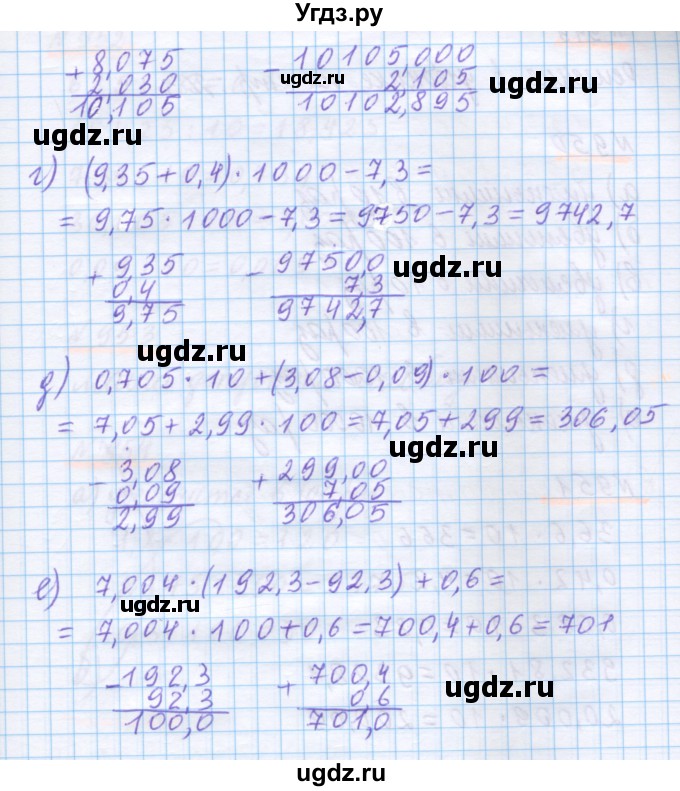 Угдз.ру
+ 8,075
2,030
10,105
- 10105,000
2,105
10102,895
ugdz.ru
ugdz.ru
г) (9,35+0,4)·1000-7,3=
= 9,75·1000-7,3=9750-7,3=9742,7
+ 9,35
0,4
9,75
- 9750,0
7,3
9742,7
ugdz.ru
ugdz.ru
д) 0,705·10+(3,08-0,09)·100=
= 7,05+2,99·100=7,05+299=306,05
ugdz.ru
- 3,08
0,09
2,99
+ 299,00
7,05
306,05
е) 7,004·(192,3-92,3)+0,6=
ugdz.ru
= 7,004·100+0,6=700,4+0,6=701
- 192,3
92,3
100,0
+ 700,4
0 6
701,0
ugdz.ru
ugdz.ru